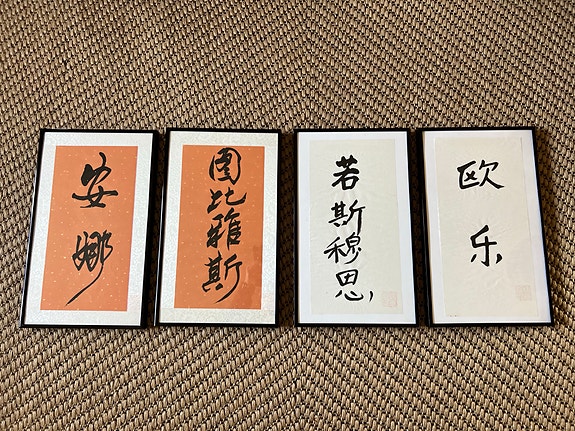 安娜
图比雅斯
若斯穆恩
欧乐